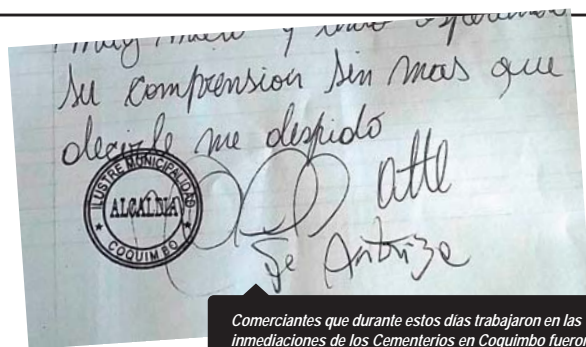 su comprension sin mas que
decirle me despido
ILUSTRE MUNICIPALIDAD
ALCALDIA
COQUIMBO
atte
Se Autoriza
Comerciantes que durante estos días trabajaron en las
inmediaciones de los Cementerios en Coquimbo fueron